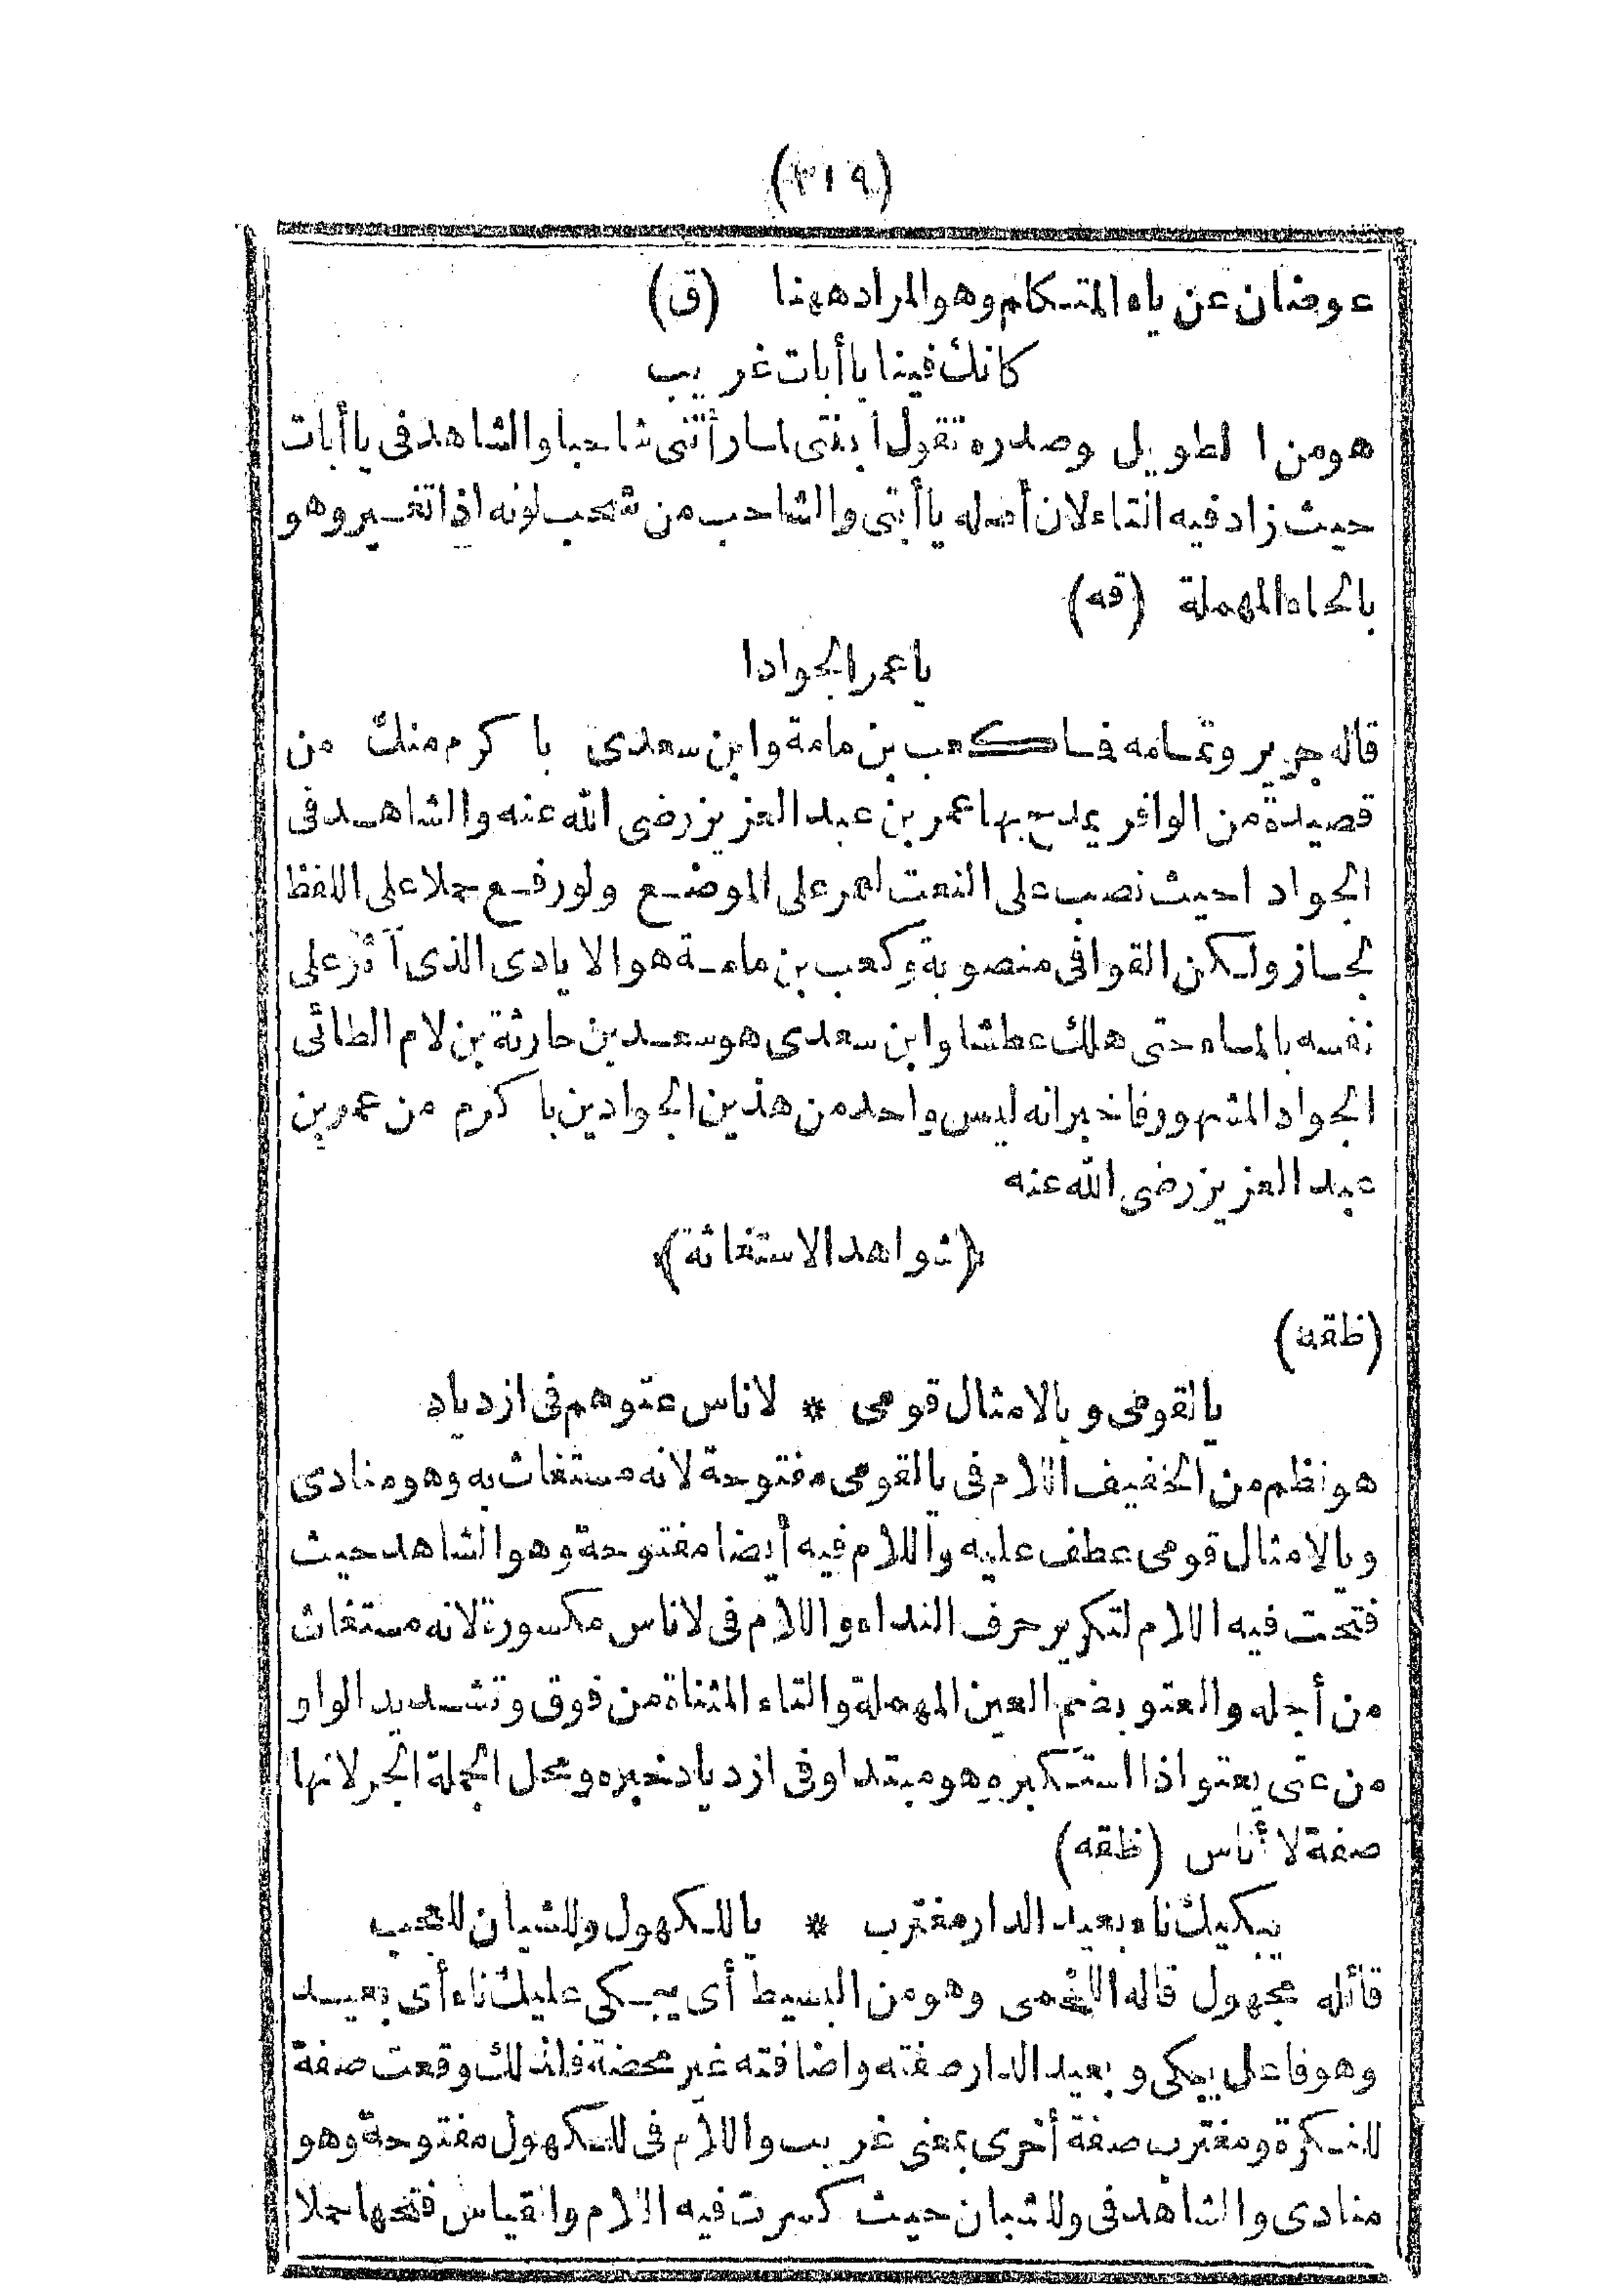 (٣١٩)
عوضان عن ياء المتكلم وهو المراد ههنا (ق)
كانك فينا يا أبات غريب
هو من الطويل وصدره تقول ابنتى لما رأتنى شاحبا والشاهد فى يا أبات
حيث زاد فيه التاء لان أصله يا أبتى والشاحب من شحب لونه اذا تغير وهو
بالحاء المهملة (قه)
يا عمر الجوادا
قاله جرير وتمامه فما كعب بن مامة وابن سعدى باكرم منك من
قصيدة من الوافر يمدح بها عمر بن عبد العزيز رضى الله عنه والشاهد فى
الجوادا حيث نصب على النعت لعمر على الموضع ولو رفع حملا على اللفظ
لجاز ولكن القوافى منصوبة وكعب بن مامة هو الايادى الذى آثر على
نفسه بالماء حتى هلك عطشا وابن سعدى هو سعد بن حارثة بن لام الطائى
الجواد المشهور فاخبر انه ليس واحد من هذين الجوادين باكرم من عمر بن
عبد العزيز رضى الله عنه
(شواهد الاستغاثة)
(ظقه)
يالقومى ويالامثال قومى * لاناس عتوهم فى ازدياد
هو نظم من الخفيف اللام فى يالقومى مفتوحة لانه مستغاث به وهو منادى
ويالامثال قومى عطف عليه واللام فيه أيضا مفتوحة وهو الشاهد حيث
فتحت فيه اللام لتكرير حرف النداء واللام فى لاناس مكسورة لانه مستغاث
من أجله والعتو بضم العين المهملة والتاء المثناة من فوق وتشديد الواو
من عتى يعتو اذا استكبر وهو مبتدا وفى ازدياد خبره ومحل الجملة الجر لانها
صفة لا أناس (ظقه)
يبكيك ناء بعيد الدار مغترب * ياللكهول وللشبان للعجب
قائله مجهول قاله اللخمى وهو من البسيط أى يبكى عليك ناء أى بعيد
وهو فاعل يبكى وبعيد الدار صفته واضافته غير محضة فلذلك وقعت صفة
للنكرة ومغترب صفة أخرى بمعنى غريب واللام فى للكهول مفتوحة وهو
منادى والشاهد فى وللشبان حيث كسرت فيه اللام والقياس فتحها حملا